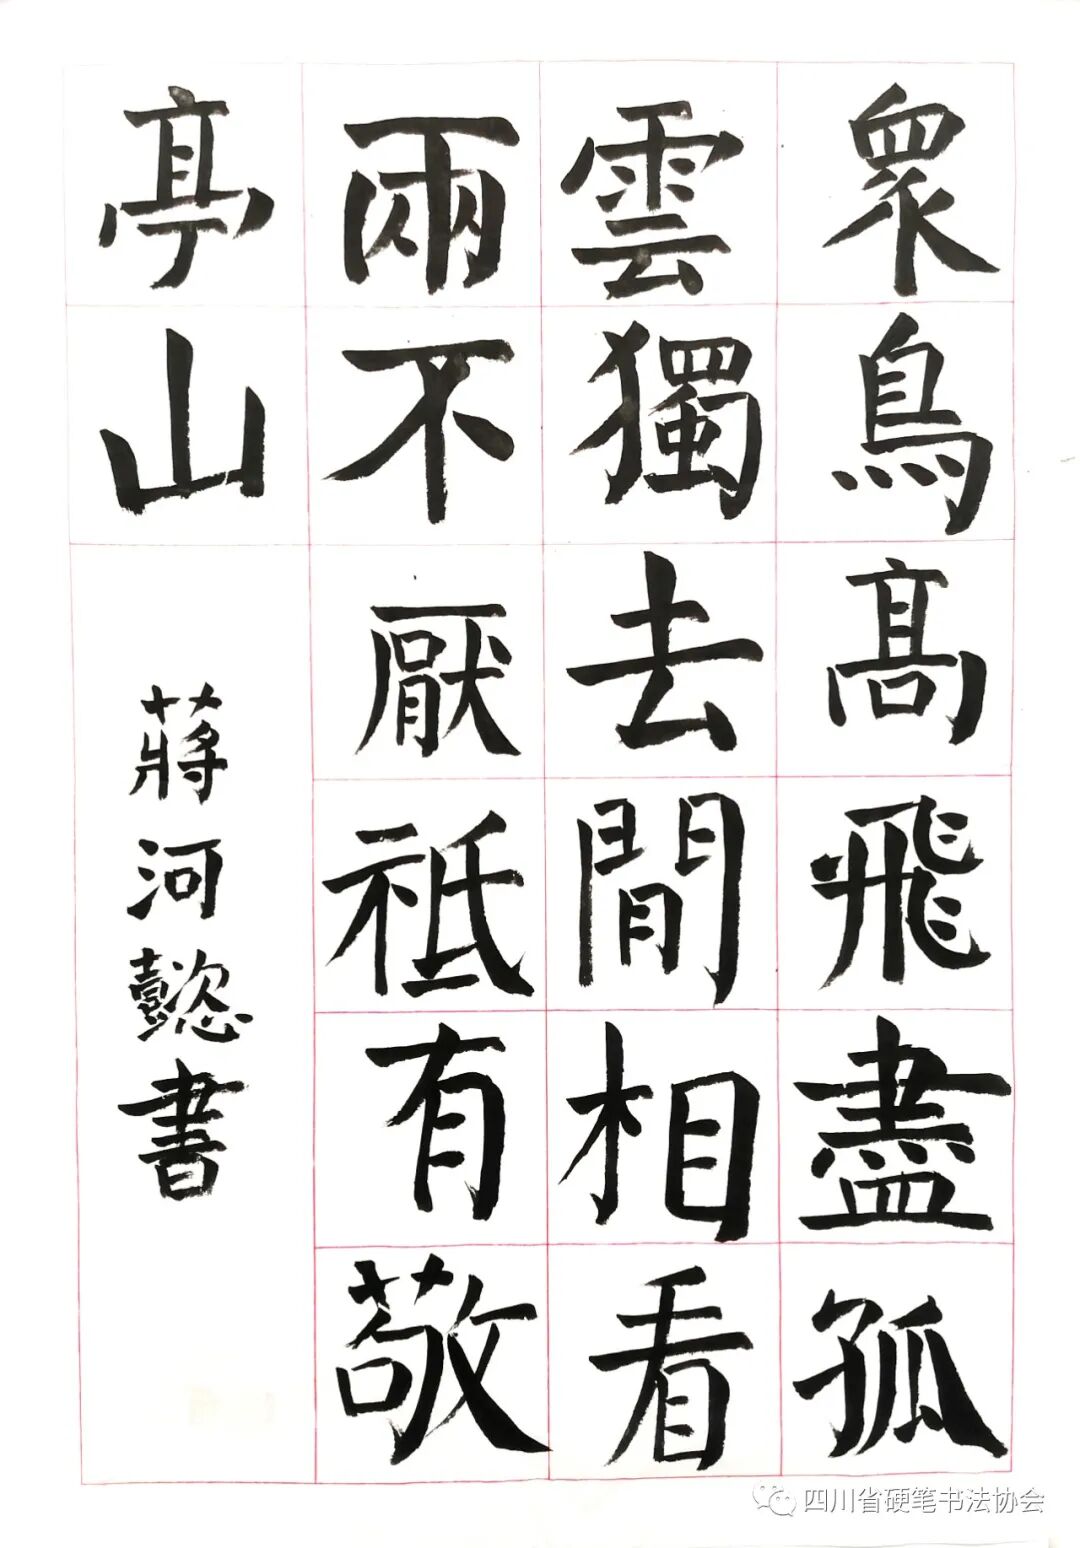 眾鳥高飛盡孤
雲獨去閒相看
兩不厭祗有敬
亭山
蔣河懿書
四川省硬笔书法协会